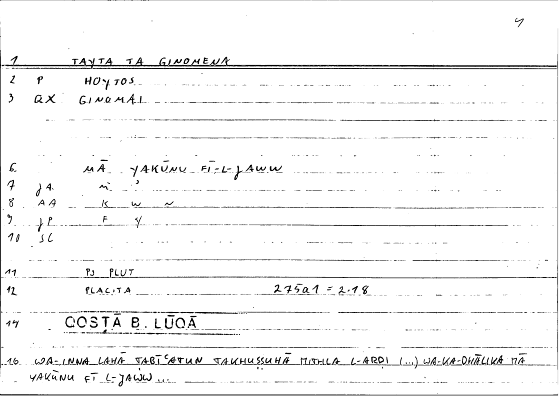 4
1 TAYTA TA GINOMENA
2 P HOYTOS
3 QX GINOMAI
6 MĀ YAKŪNU FĪ-L-JAWW
7 JA M ʾ
8 AA K W N
9 JP F Y
10 SL
11 PS PLUT
12 PLACITA 275a1 = 2.18
14 QOSṬĀ B. LŪQĀ
16 WA-INNA LAHĀ ṬABĪʿATUN TAKHUṢṢUHĀ MITHLA L-ARḌI (...) WA-KA-DHĀLIKA MĀ
YAKŪNU FĪ L-JAWW ...